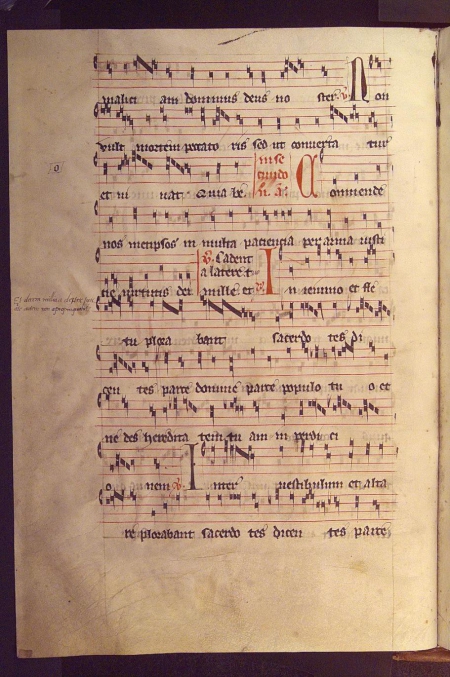 malici am dominus deus no ster. V. Non
vult mortem peccato ris sed ut converta tur
et vi vat. Quia be
in se
cundo
n. a.
Commende
mus metipsos in multa paciencia per arma iusti
V. Cadent
a latere t
cie virtutis dei mille et In ieiunio et fle
tu plora bant sacerdo tes di
cen tes parce domine parce populo tu o et
ne des heredita tem tu am in perdi ci
o nem V. Inter vestibulum et alta
re plorabant sacerdo tes dicen tes parce